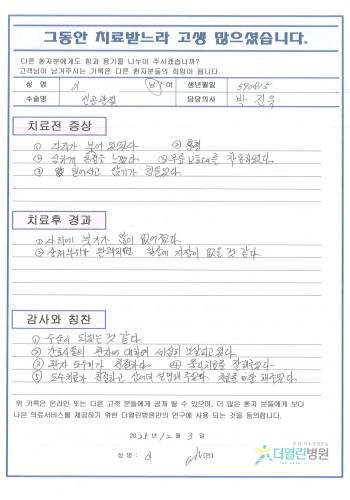 그동안 치료받느라 고생 많으셨습니다.
다른 환자분에게도 힘과 용기를 나누어 주시겠습니까?
고객님이 남겨주시는 기록은 다른 환자분들의 희망이 됩니다.
성 명 이 남/여 생년월일
수술명 인공관절 담당의사 박진욱
치료전 증상
① 다리가 붓어 있었다 ② 통증
③ 심하게 느꼈다 ④ 착용하였다.
⑤ 일어서고 앉기가 힘들었다
치료후 경과
① 다리에 붓기가 많이 없어졌다.
② 상처부위가 완쾌되면 일상에 지장이 없을 것 같다.
감사와 칭찬
① 수술이 잘 되었는 것 같다.
② 간호사들의 환자에 대하여 보살피고 있다.
③ 환자 도우미가 친절하다. ④ 물리치료를 잘해준다.
⑤ 도수치료가 친절하고 설명해 주었다. 치료를 잘 해주었다.
위 기록은 온라인 또는 다른 고객 분들에게 공개 될 수 있으며, 더 많은 환자 분들에게 보다
나은 의료서비스를 제공하기 위한 더열린병원만의 연구에 사용 되는 것을 동의합니다.
2025년 12월 3일
성 명 : 이 (인)
더열린병원